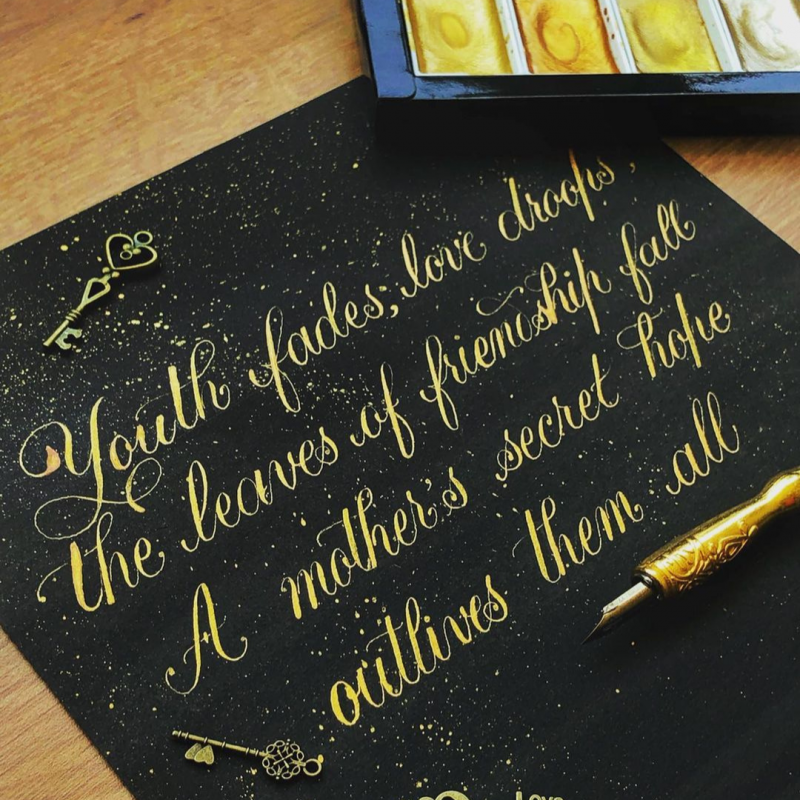 Youth fades; love droops,
the leaves of friendship fall
A mother's secret hope
outlives them all
Love